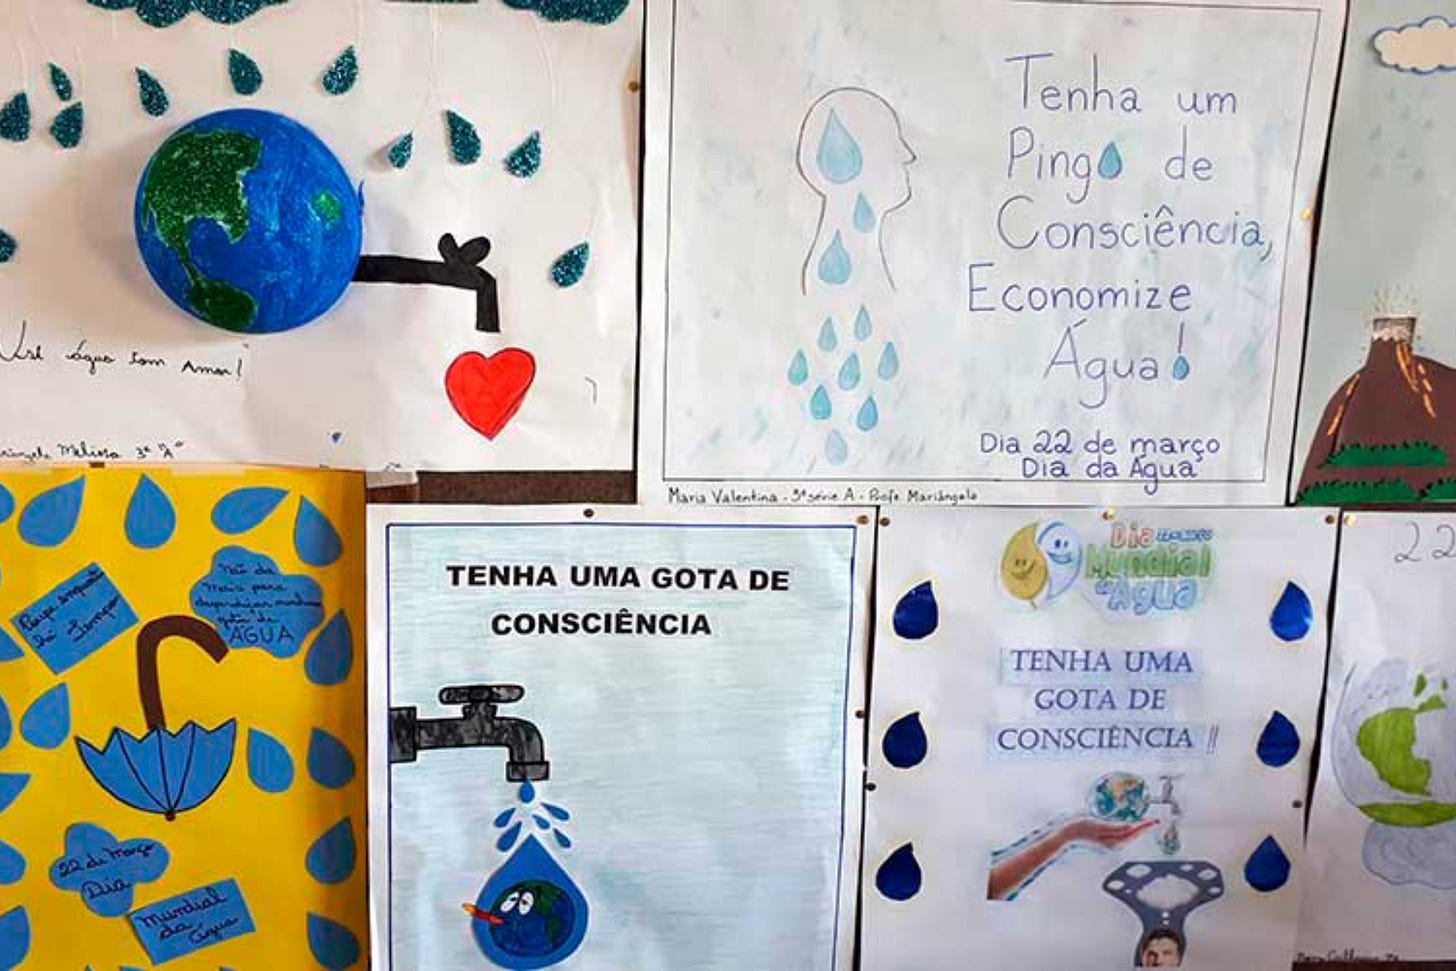 Use água com Amor!
Melissa 3ª "A"
Tenha um
Pingo de
Consciência,
Economize
Água!
Dia 22 de março
Dia da Água
Maria Valentina - 3ª série A - Profe Mariângela
há Tempo
Não dá
mais para
desperdiçar nenhuma
gota de
ÁGUA
22 de Março
Dia
Mundial
da
Água
TENHA UMA GOTA DE
CONSCIÊNCIA
Dia
Mundial
da Água
TENHA UMA
GOTA DE
CONSCIÊNCIA !!
22